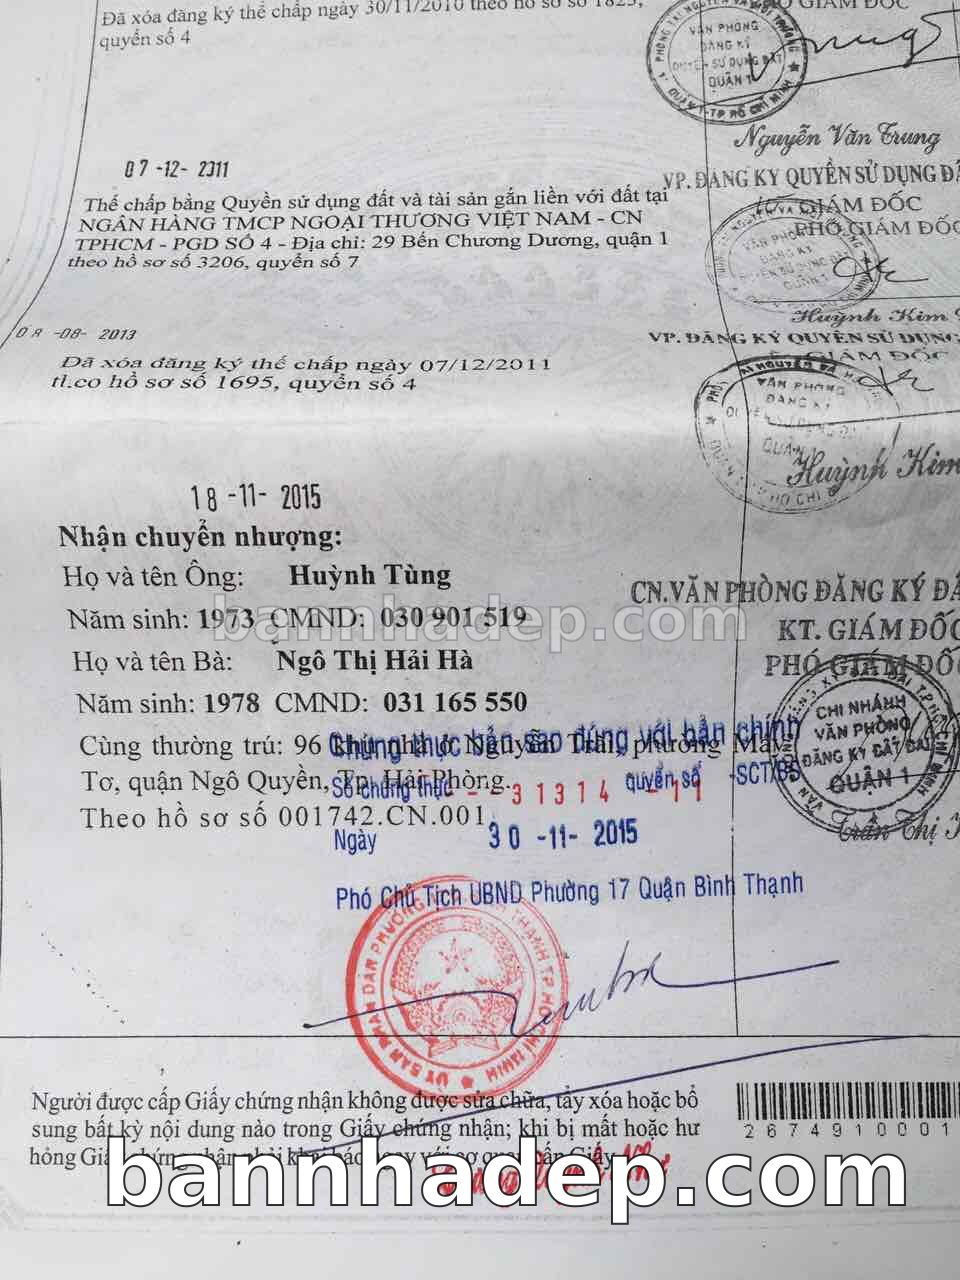 Đã xóa đăng ký thế chấp ngày 30/11/2010 theo hồ sơ số 1825,
quyển số 4
PHÓ GIÁM ĐỐC
VĂN PHÒNG
ĐĂNG KÝ
QUYỀN SỬ DỤNG ĐẤT
QUẬN 1
QUẬN 1-TP. HỒ CHÍ MINH
Nguyễn Văn Trung
07 -12- 2011
VP.ĐĂNG KÝ QUYỀN SỬ DỤNG ĐẤ
GIÁM ĐỐC
PHÓ GIÁM ĐỐC
Thế chấp bằng Quyền sử dụng đất và tài sản gắn liền với đất tại
NGÂN HÀNG TMCP NGOẠI THƯƠNG VIỆT NAM - CN
TPHCM - PGD SỐ 4 - Địa chỉ: 29 Bến Chương Dương, quận 1
theo hồ sơ số 3206, quyển số 7
VĂN PHÒNG
ĐĂNG KÝ
QUYỀN SỬ DỤNG ĐẤT
QUẬN 1
Huỳnh Kim
08 -08- 2013
VP. ĐĂNG KÝ QUYỀN SỬ DỤNG
GIÁM ĐỐC
Đã xóa đăng ký thế chấp ngày 07/12/2011
tl.co hồ sơ số 1695, quyển số 4
VĂN PHÒNG
ĐĂNG KÝ
QUẬN 1
Huỳnh Kim
18 -11- 2015
Nhận chuyển nhượng:
Họ và tên Ông: Huỳnh Tùng
Năm sinh: 1973 CMND: 030 901 519
Họ và tên Bà: Ngô Thị Hải Hà
Năm sinh: 1978 CMND: 031 165 550
Cùng thường trú: 96 khu nhà ở Nguyễn Trãi, phường Máy
Tơ, quận Ngô Quyền, Tp. Hải Phòng.
Theo hồ sơ số 001742.CN.001.
bannhadep.com
CN.VĂN PHÒNG ĐĂNG KÝ ĐẤ
KT. GIÁM ĐỐC
PHÓ GIÁM ĐỐC
CHI NHÁNH
VĂN PHÒNG
ĐĂNG KÝ ĐẤT ĐAI
QUẬN 1
Trần Thị
Chứng thực bản sao đúng với bản chính
Số chứng thực 31314 quyển số 11 -SCT/BS
Ngày 30 -11- 2015
Phó Chủ Tịch UBND Phường 17 Quận Bình Thạnh
Người được cấp Giấy chứng nhận không được sửa chữa, tẩy xóa hoặc bổ
sung bất kỳ nội dung nào trong Giấy chứng nhận; khi bị mất hoặc hư
hỏng Giấy chứng nhận phải khai báo ngay với cơ quan cấp Giấy.
2674910001
bannhadep.com